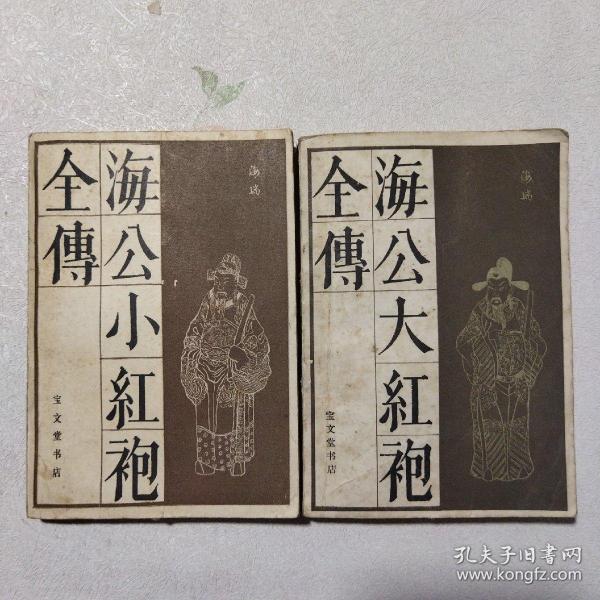 海公小紅袍
全傳
宝文堂书店
海瑞
海公大紅袍
全傳
宝文堂书店
海瑞
孔夫子旧书网
www.kongfz.com